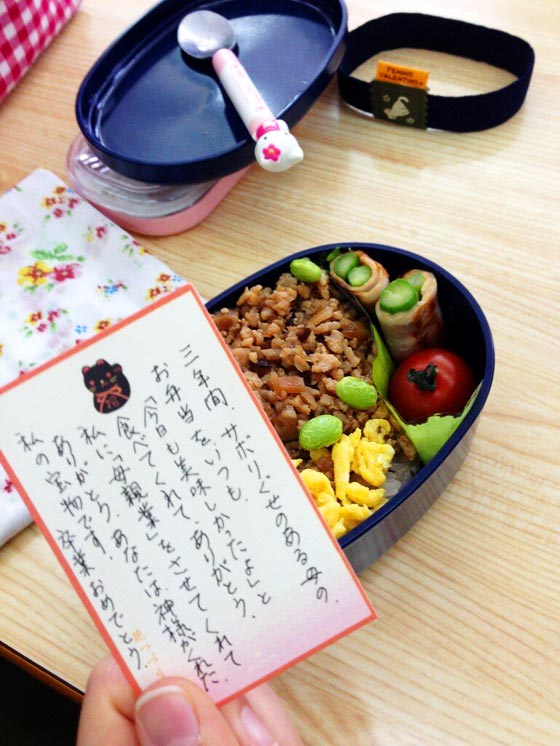 三年間、サボりぐせのある母の、
お弁当をいつも、
「今日も美味しかったよ」と
食べてくれて、ありがとう。
私に「母親業」をさせてくれて
ありがとう。あなたは神様がくれた、
私の宝物です。卒業おめでとう。
FEMMIO
VALENTINO